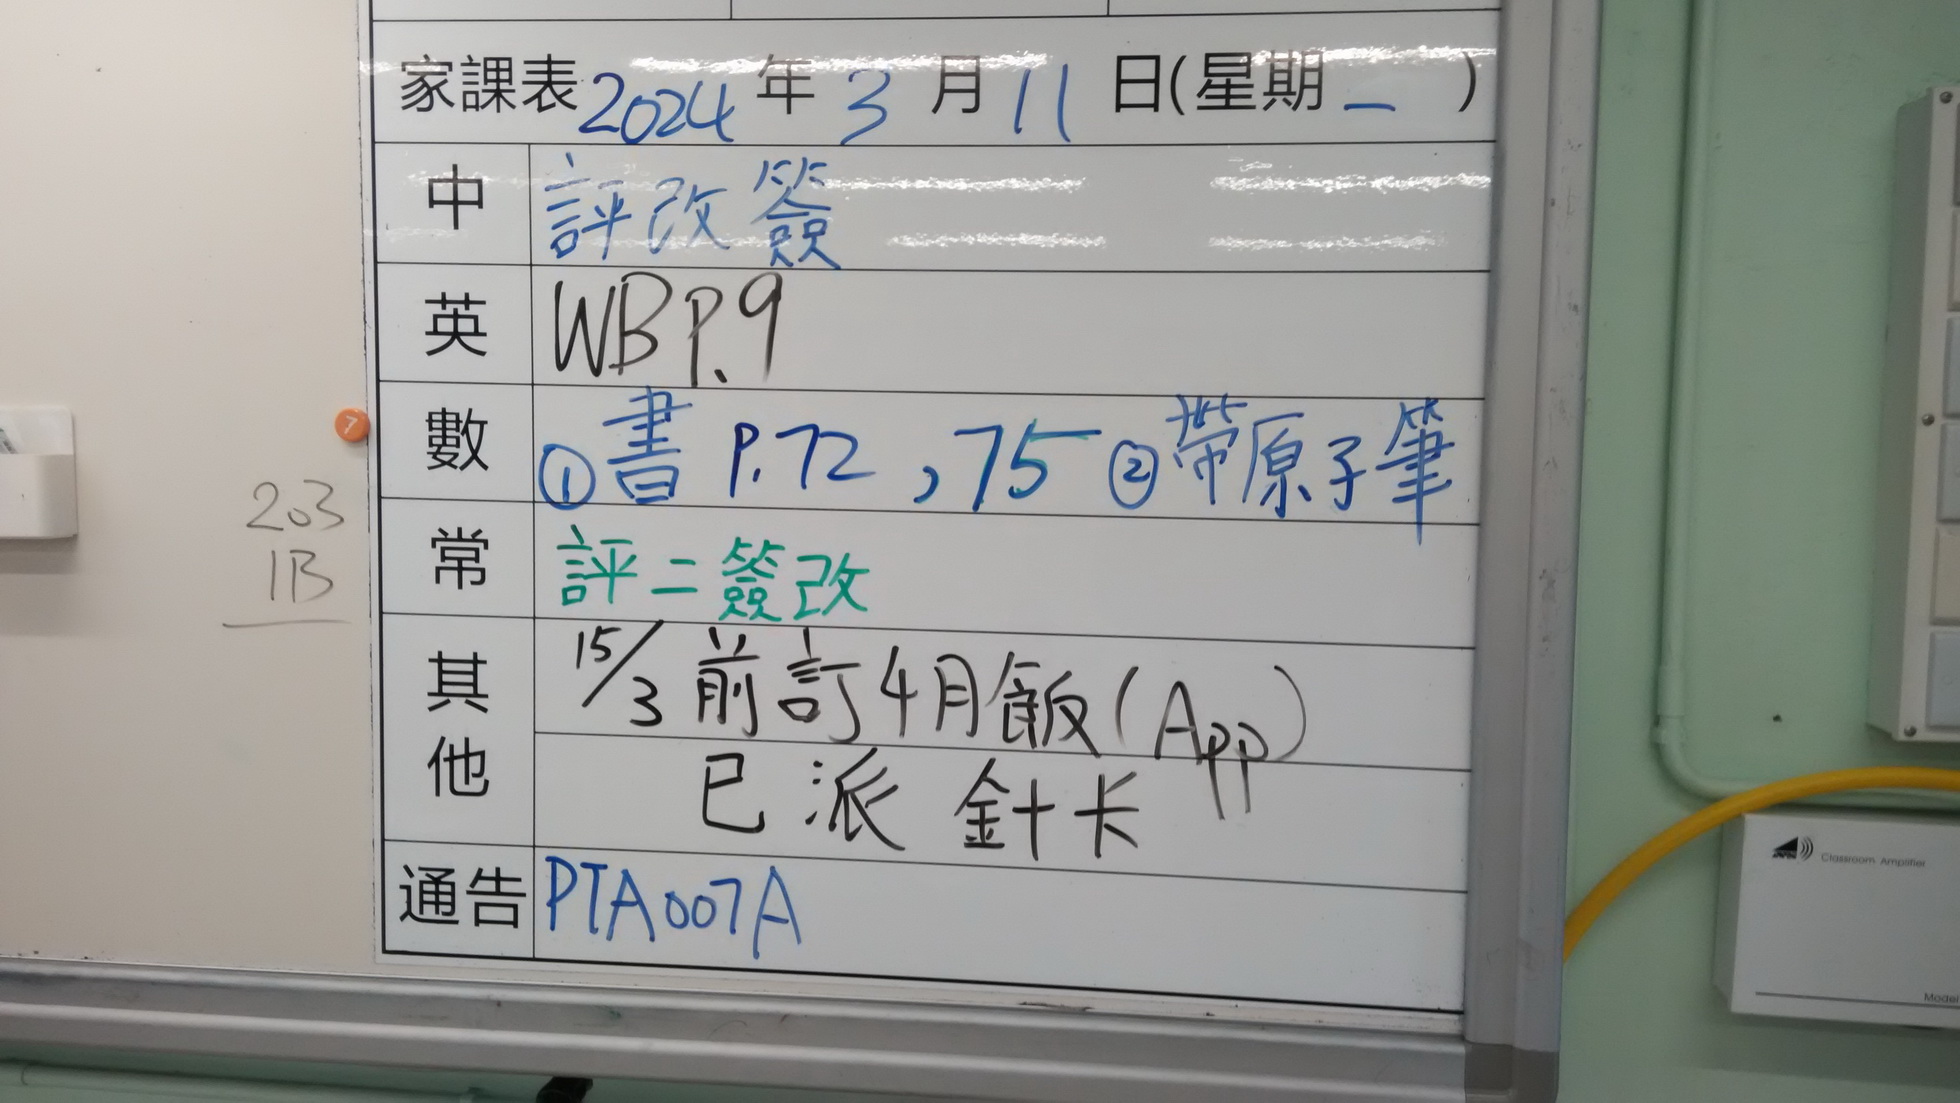 家課表 2024 年 3 月 11 日(星期 一 )
中 評改簽
英 WB P.9
數 ①書 P.72 , 75 ②帶原子筆
常 評二簽改
其他 15/3 前訂4月飯(App)
已派 針卡
通告 PTA007A
7
203
1B
Classroom Amplifier
Model